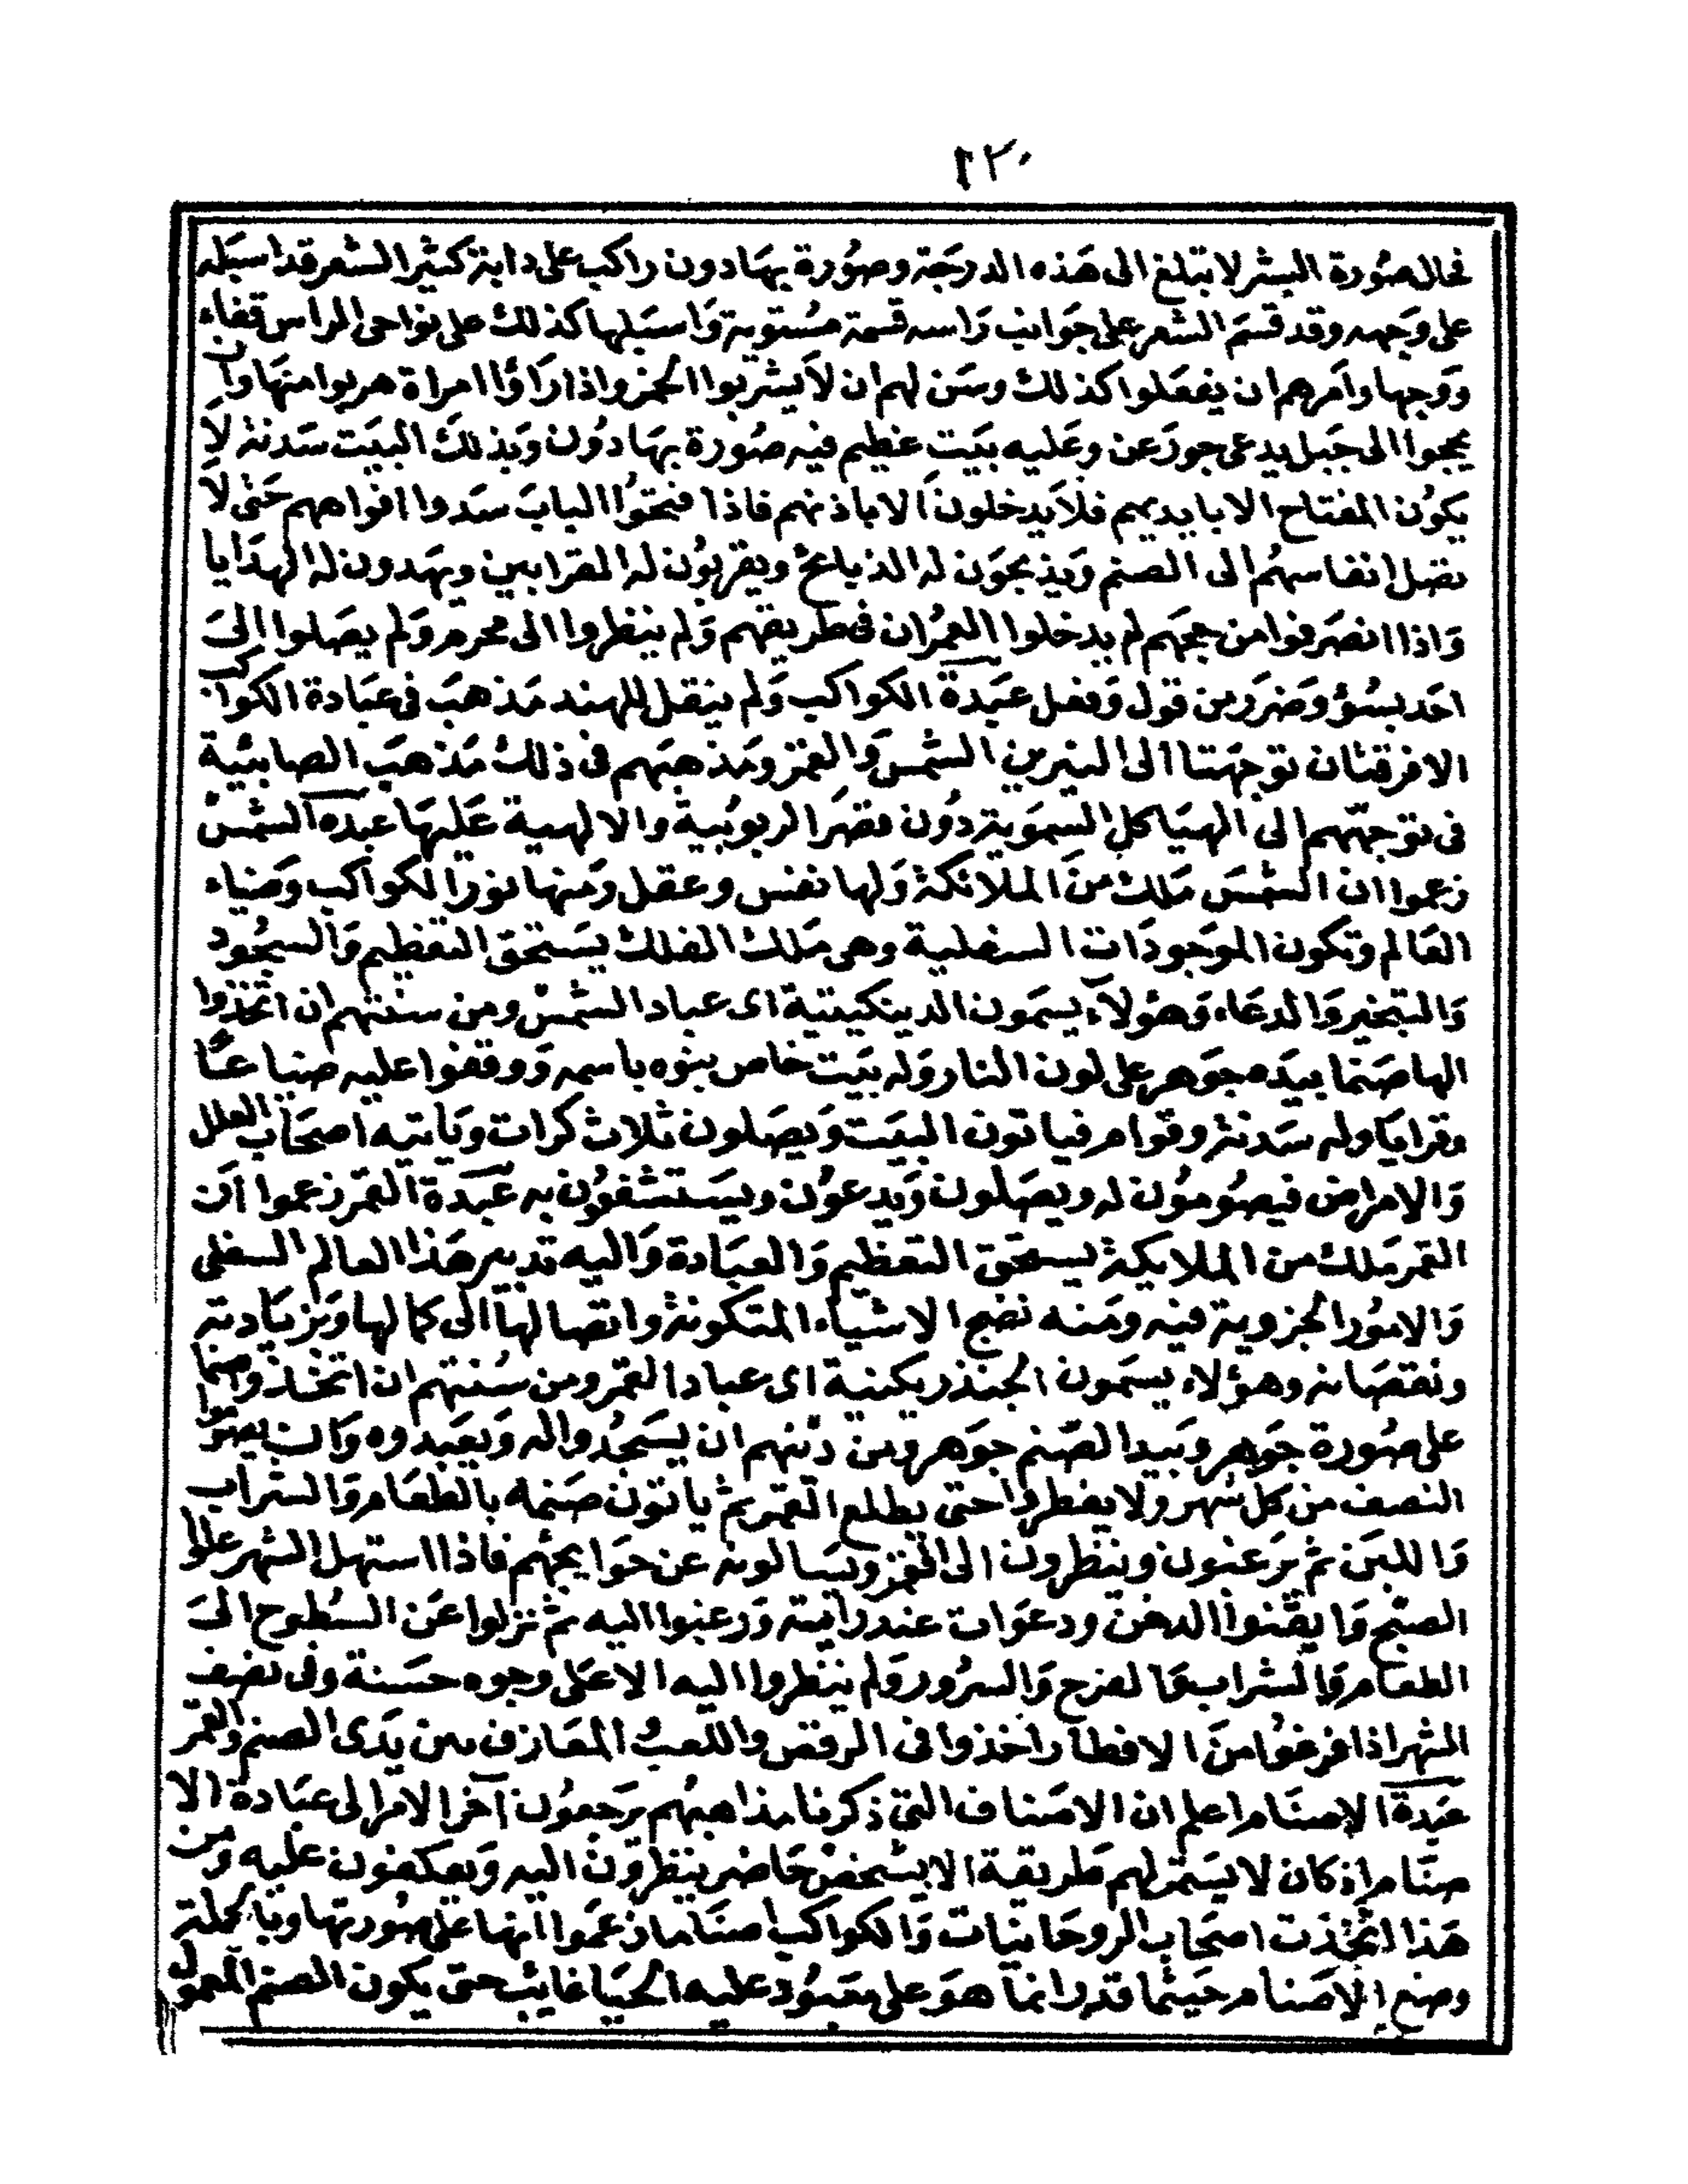 ١٢٠
فحال صورة البشر لا تبلغ الى هذه الدرجة وصورة بهادون راكب على دابة كثير الشعر قد اسبله
على وجهه وقد قسم الشعر على جوانب راسه قسمة مستوية واسبلها كذلك على نواحى الراس قفاء
ووجها وامرهم ان يفعلوا كذلك وسن لهم ان لا يشربوا الخمر واذا راوا امراة هربوا منها وان
يحجوا الى جبل يدعى جورعن وعليه بيت عظيم فيه صورة بهادون وبذلك البيت سدنة لا
يكون المفتاح الا بايديهم فلا يدخلون الا باذنهم فاذا فتحوا الباب سدوا افواههم حتى لا
تصل انفاسهم الى الصنم ويذبحون له الذبايح ويقربون له القرابين ويهدون له الهدايا
واذا انصرفوا من حجهم لم يدخلوا العمران فى طريقهم ولم ينظروا الى محرم ولم يصلوا الى
احد بسؤ وضرر من قول وفعل عبدة الكواكب ولم ينقل للهند مذهب فى عبادة الكواكب
الا فرقتان توجهتا الى النيرين الشمس والقمر ومذهبهم فى ذلك مذهب الصابئية
فى توجههم الى الهياكل السموية دون قصر الربوبية والالهية عليها عبدة الشمس
زعموا ان الشمس ملك من الملائكة ولها نفس وعقل ومنها نور الكواكب وضياء
العالم وتكون الموجودات السفلية وهى ملك الفلك يستحق التعظيم والسجود
والتبخير والدعاء وهؤلاء يسمون الدينكيتية اى عباد الشمس ومن سنتهم ان اتخذوا
الها صنما بيده جوهر على لون النار وله بيت خاص بنوه باسمه ووقفوا عليه ضياعا
وقرايا وله سدنة وقوام فياتون البيت ويصلون ثلاث كرات وياتيه اصحاب العلل
والامراض فيصومون له ويصلون ويدعون ويستشفون به عبدة القمر زعموا ان
القمر ملك من الملايكة يستحق التعظيم والعبادة واليه تدبير هذا العالم السفلى
والامور الجزوية فيه ومنه نضج الاشياء المتكونة واتصالها الى كمالها وبزيادته
ونقصانه وهؤلاء يسمون الجندريكنية اى عباد القمر ومن سنتهم ان اتخذوا صنما
على صورة جوهر وبيد الصنم جوهر ومن دينهم ان يسجدوا له ويعبدوه وان يصوموا
النصف من كل شهر ولا يفطروا حتى يطلع القمر ثم ياتون صنمه بالطعام والشراب
واللبن ثم يرغبون وينظرون الى القمر ويسالونه عن حوايجهم فاذا استهل الشهر علوا
الصبح وايقنوا الدهن ودعوات عند رايته ورغبوا اليه ثم نزلوا عن السطوح الى
الطعام والشراب والفرح والسرور ولم ينظروا اليه الا على وجوه حسنة وفى نصف
الشهر اذا فرغوا من الافطار اخذوا فى الرقص واللعب المعازف بين يدى الصنم والقمر
عبدة الاصنام اعلم ان الاصناف التى ذكرنا مذاهبهم يرجعون آخر الامر الى عبادة الا
صنام اذ كان لا يستمر لهم طريقة الا بشخص حاضر ينظرون اليه ويعكفون عليه ومن
هذا اتخذت اصحاب الروحانيات والكواكب اصناما زعموا انها على صورتها وبالجملة
وضع الاصنام حيثما قدر انما هو على معبود عليه الحيا غايب حتى يكون الصنم المعمول